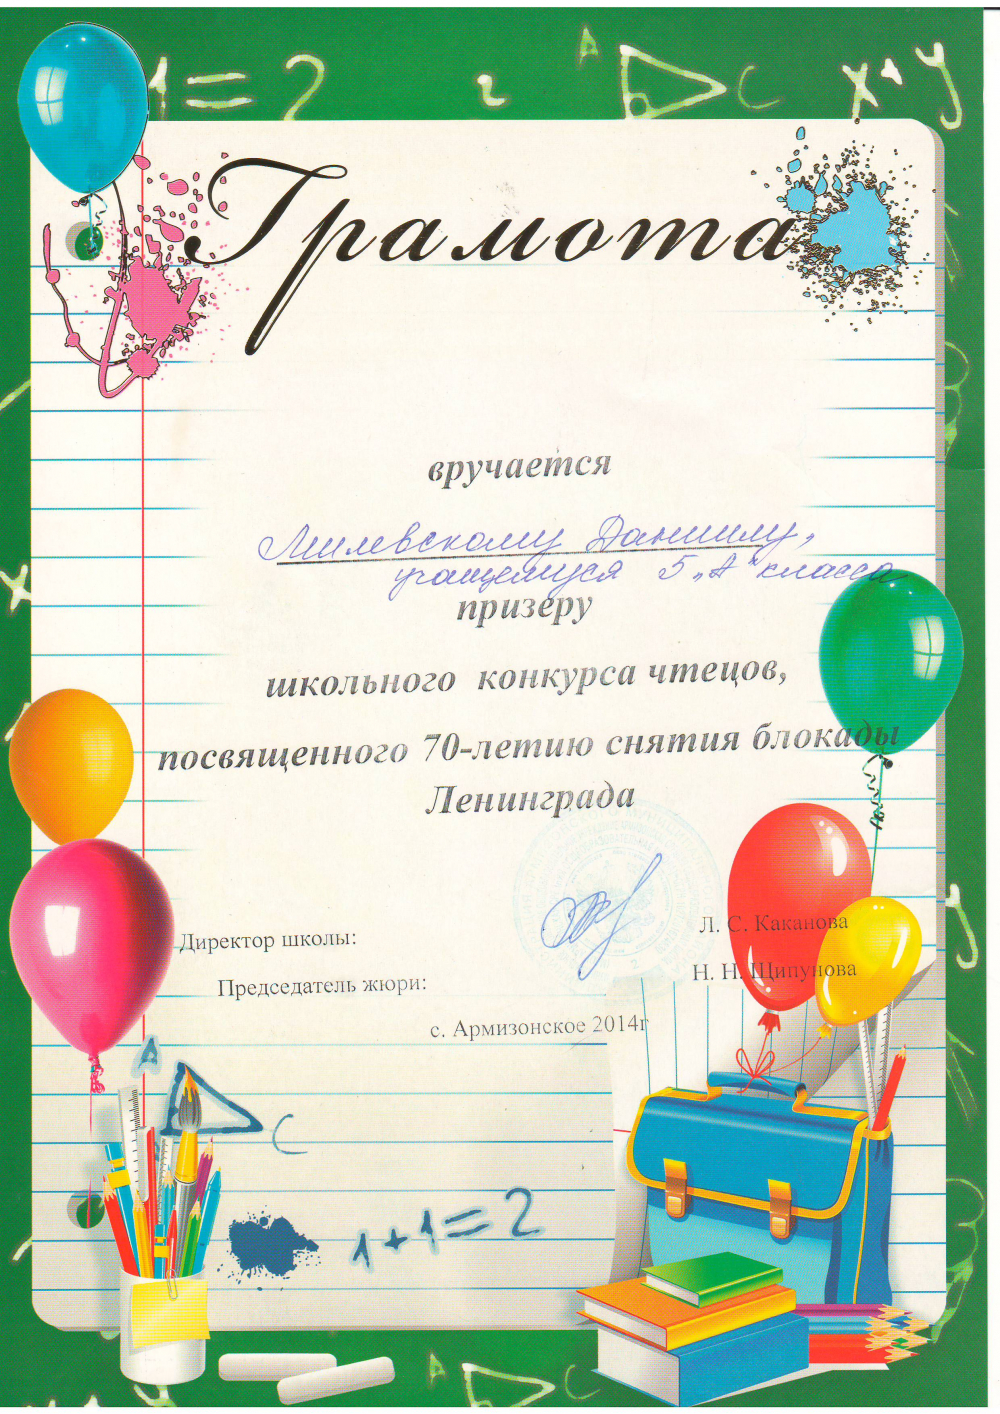 1 = 2 2 A C x·y
Грамота
вручается
Милевскому Даниилу,
учащемуся 5 „А" класса
призеру
школьного конкурса чтецов,
посвященного 70-летию снятия блокады
Ленинграда
Директор школы: Л. С. Каканова
Председатель жюри: Н. Н. Щипунова
с. Армизонское 2014г
A
C
1+1=2
A C